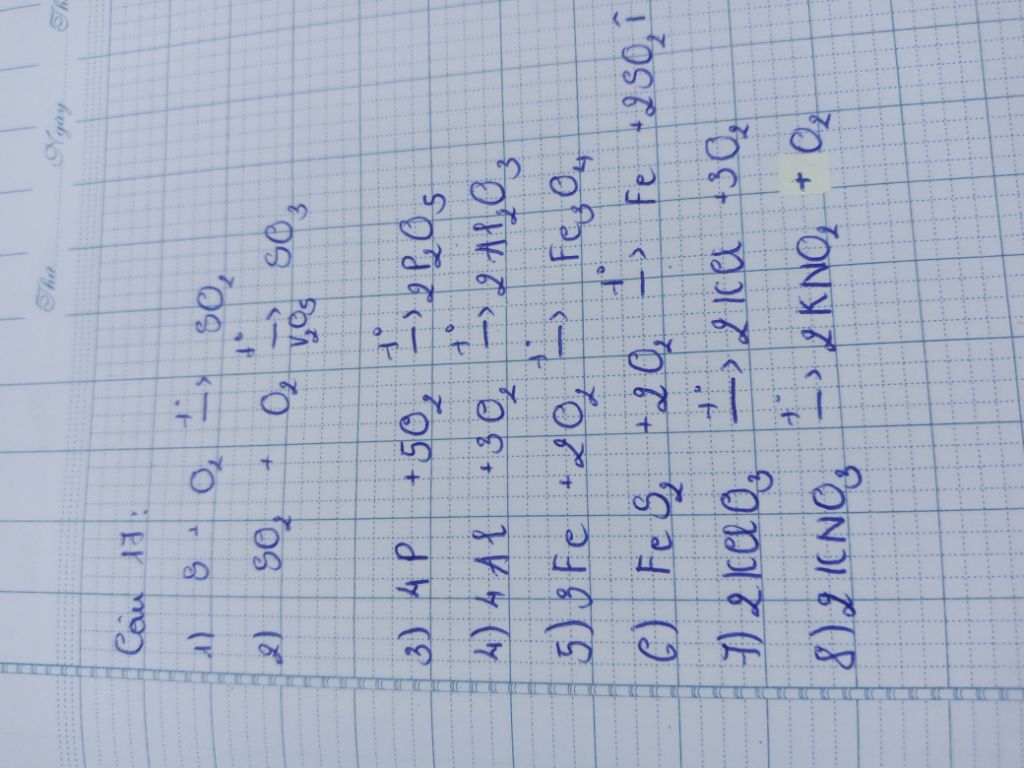 Thứ Ngày Th
Câu 17:
1) S + O₂ -t°-> SO₂
2) SO₂ + O₂ -t°, V₂O₅-> SO₃
3) 4P + 5O₂ -t°-> 2P₂O₅
4) 4Al + 3O₂ -t°-> 2Al₂O₃
5) 3Fe + 2O₂ -t°-> Fe₃O₄
6) FeS₂ + 2O₂ -t°-> Fe + 2SO₂↑
7) 2KClO₃ -t°-> 2KCl + 3O₂
8) 2KNO₃ -t°-> 2KNO₂ + O₂